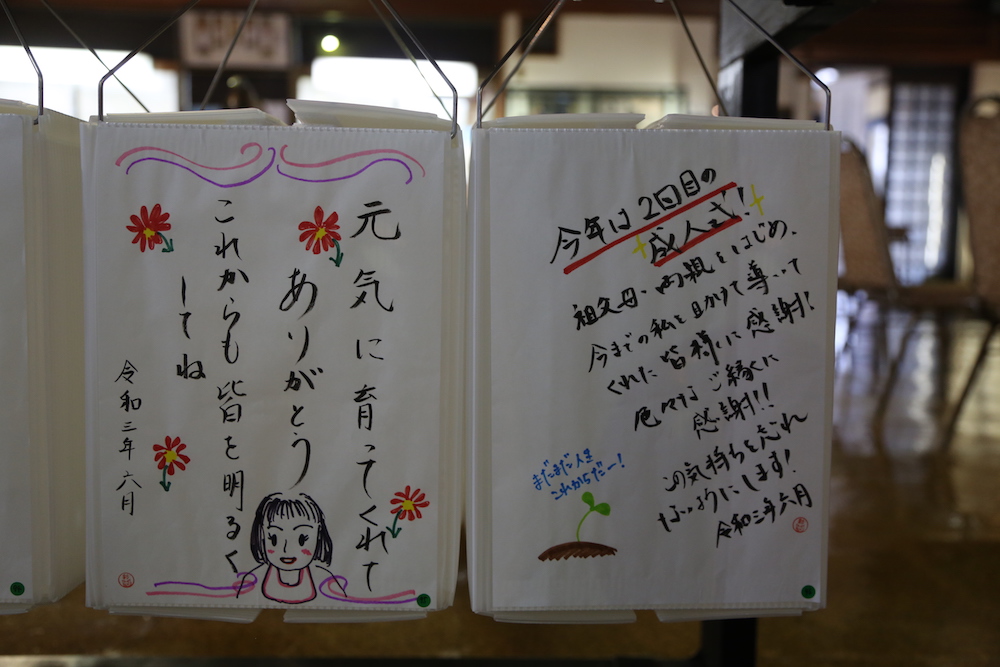 元気に育ってくれて
ありがとう
これからも皆を明るく
してね
令和三年六月
今年は2回目の
成人式!
祖父母・両親をはじめ、
今までの私を助けて導いて
くれた皆様に感謝!
色々なご縁に
感謝!!
この気持ちを忘れ
ないようにします!
令和三年六月
まだまだ人生
これからだー!